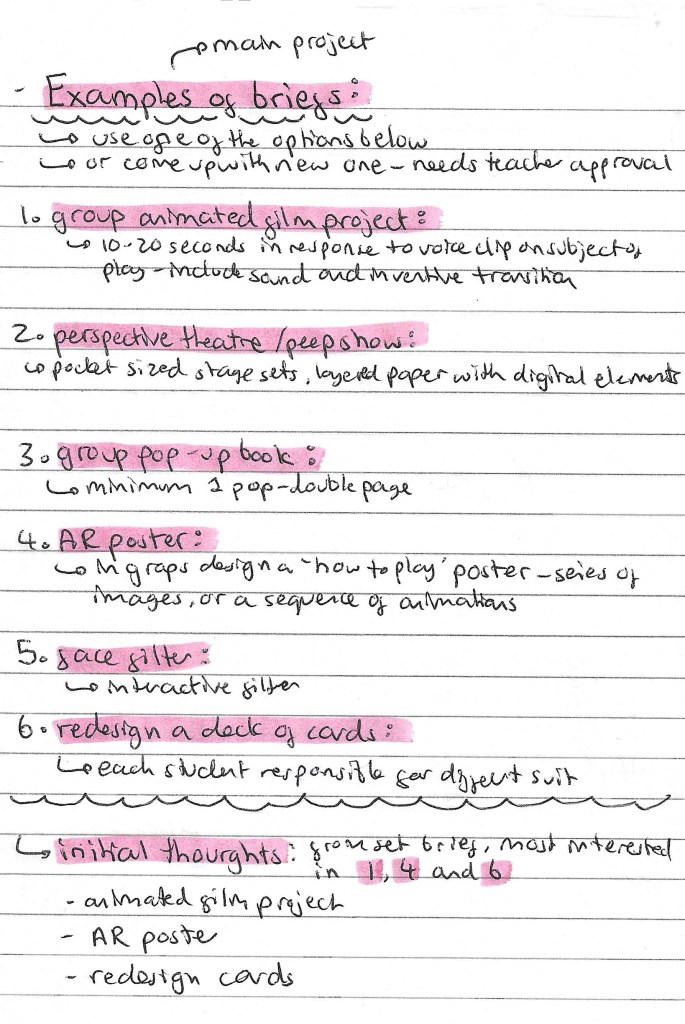 ↳ main project
- Examples of briefs:
↳ use one of the options below
↳ or come up with new one - needs teacher approval
1. group animated film project:
↳ 10-20 seconds in response to voice clip on subject of
play - include sand and inventive transition
2. perspective theatre / peepshow:
↳ pocket sized stage sets, layered paper with digital elements
3. group pop-up book:
↳ minimum 1 pop-double page
4. AR poster:
↳ in graps design a "how to play" poster - seies of
images, or a sequence of animations
5. face filter:
↳ interactive filter
6. redesign a deck of cards:
↳ each student responsible for diffent suit
↳ initial thourghts: from set brief, most interested
in 1, 4 and 6
- animated film project
- AR poster
- redesign cards